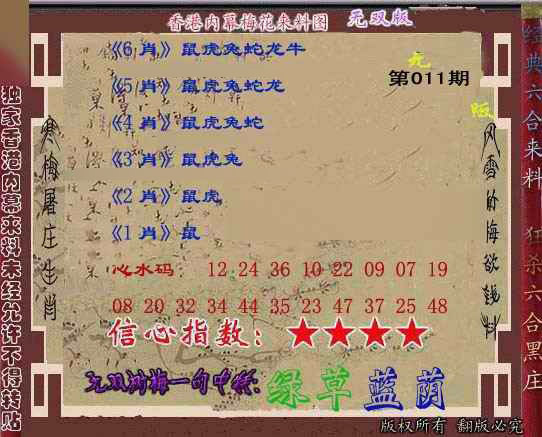 香港内幕梅花来料图 无双版
《6 肖》鼠虎兔蛇龙牛
无
第011期
《5 肖》鼠虎兔蛇龙
版
《4 肖》鼠虎兔蛇
《3 肖》鼠虎兔
《2 肖》鼠虎
《1 肖》鼠
心水码: 12 24 36 10 22 09 07 19
08 20 32 34 44 35 23 47 37 25 48
信心指数: ★★★★
绿草蓝荫
版权所有 翻版必究
独家香港内幕来料未经允许不得转贴
寒梅屠庄生肖
经典六合来料 狂杀六合黑庄